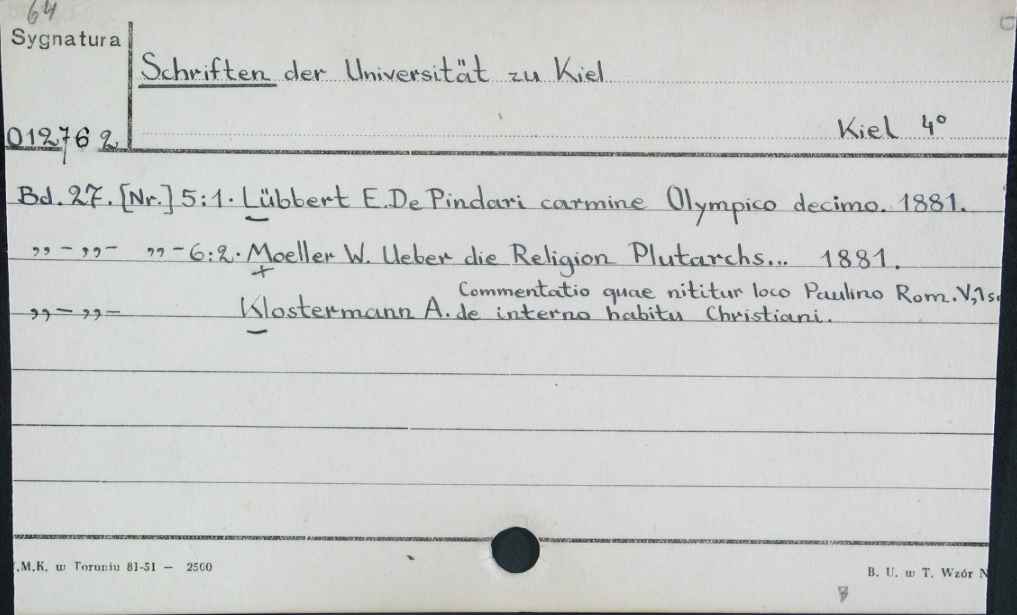 64
Sygnatura
Schriften der Universität zu Kiel
012762
Kiel 4°
Bd. 27. [Nr.] 5:1. Lübbert E. De Pindari carmine Olympico decimo. 1881.
,,-,,- ,,-6:2. Moeller W. Ueber die Religion Plutarchs... 1881.
Commentatio quae nititur loco Paulino Rom. V,1s
,,-,,- Klostermann A. de interno habitu Christiani.
.M.K. w Toruniu 81-51 — 2500
B. U. w T. Wzór N